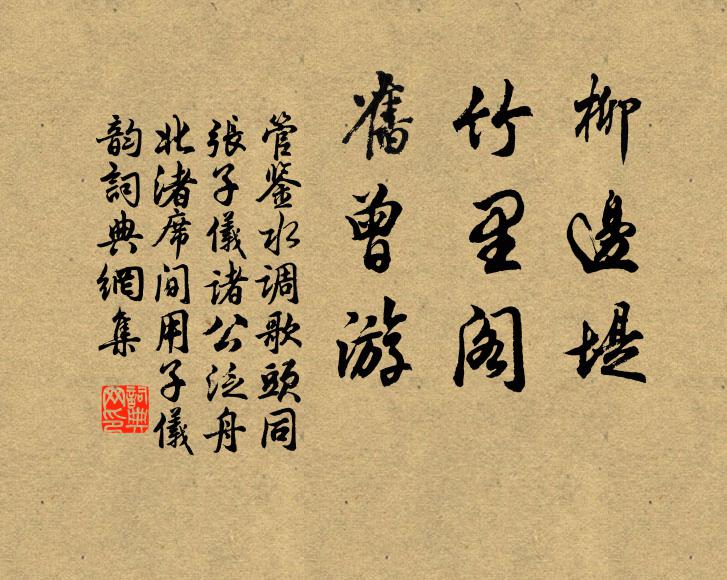 柳邊堤
竹里閣
舊曾游
管鉴水調歌頭同
張子儀諸公泛舟
北渚席间用子儀
韵詞典網集
詞典
网印